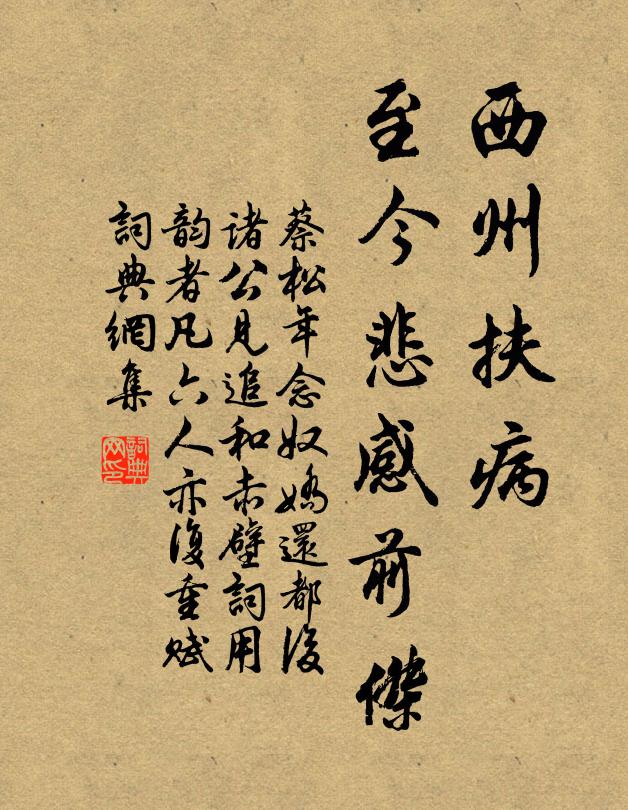 西州扶病
至今悲感前傑
蔡松年念奴嬌還都後
诸公見追和赤壁詞用
韵者凡六人亦復重赋
詞典網集
詞典网印